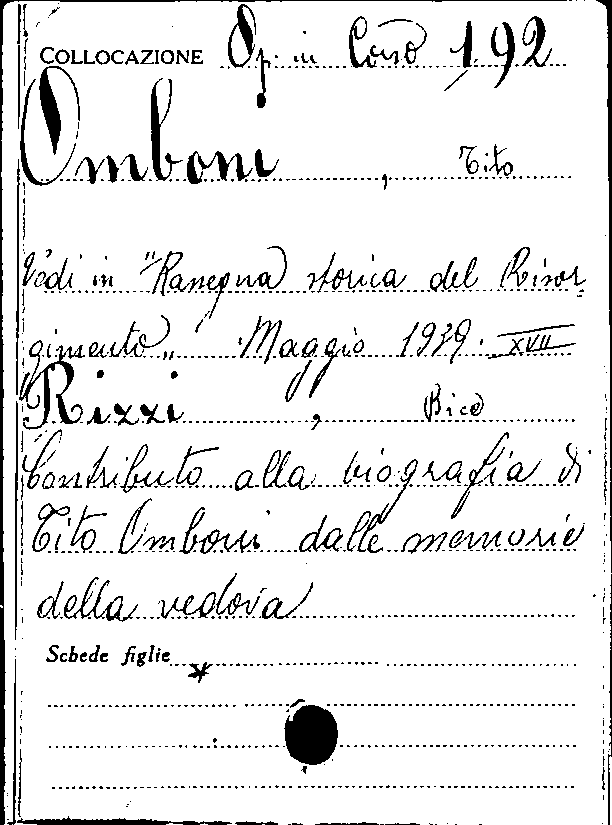 COLLOCAZIONE Op. in Corso 192
Omboni, Tito
Vedi in "Rassegna storica del Risor-
gimento„ Maggio 1939. XVII
Rizzi, Bice
Contributo alla biografia di
Tito Omboni dalle memorie
della vedova
Schede figlie *